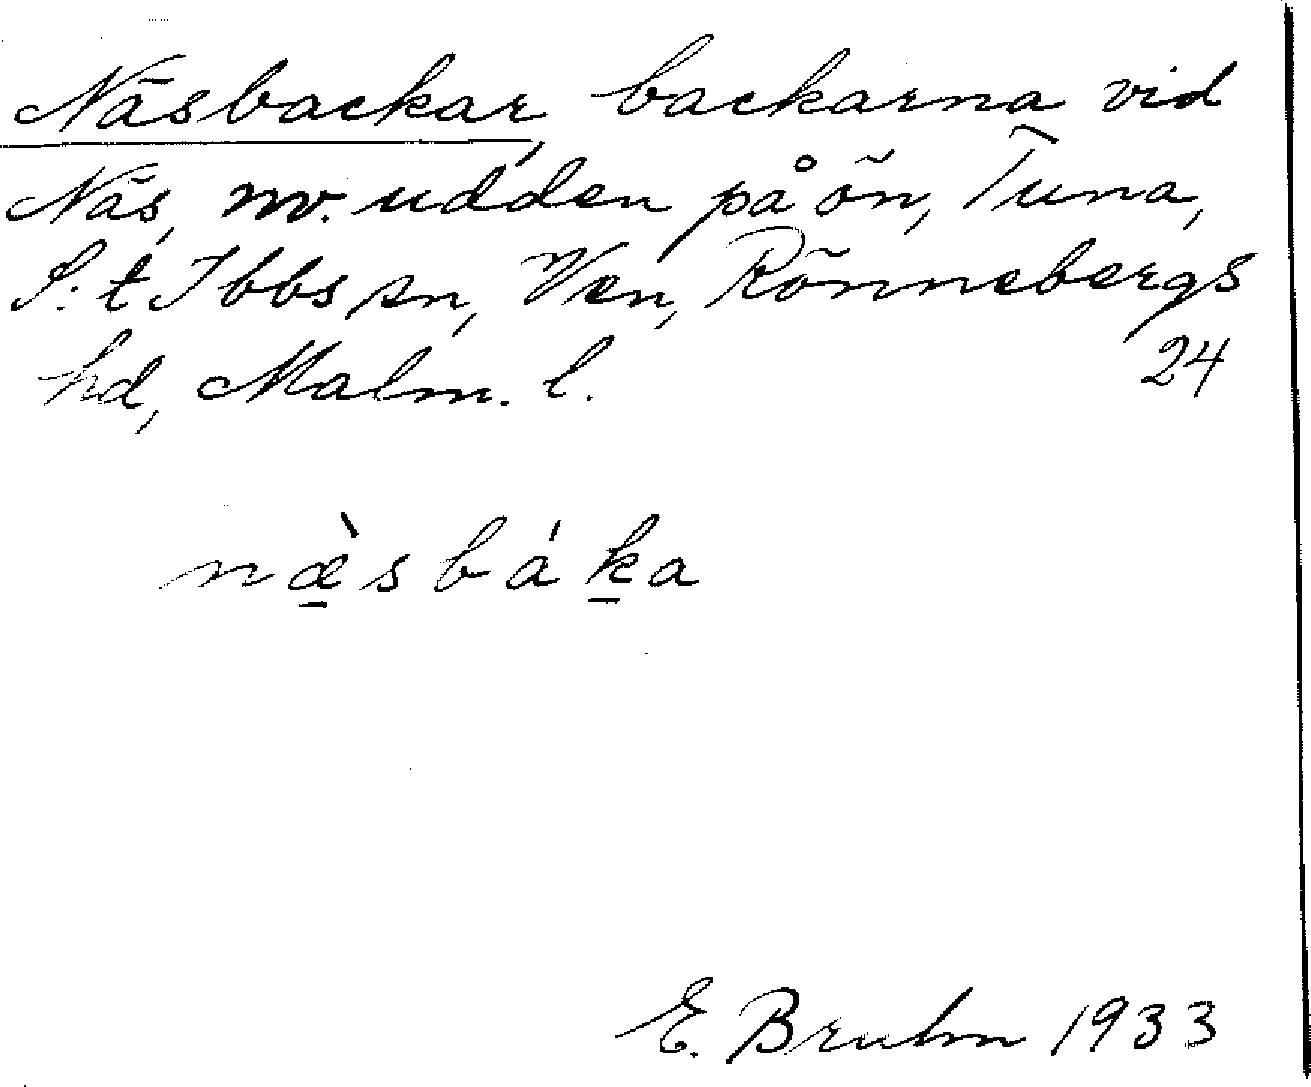 Näsbackar, backarna vid
Näs, nv. udden på ön, Tuna,
S:t Ibbs sn, Ven, Rönnebergs
hd, Malm. l. 24
næ̱̀sbáḵa
E. Bruhn 1933